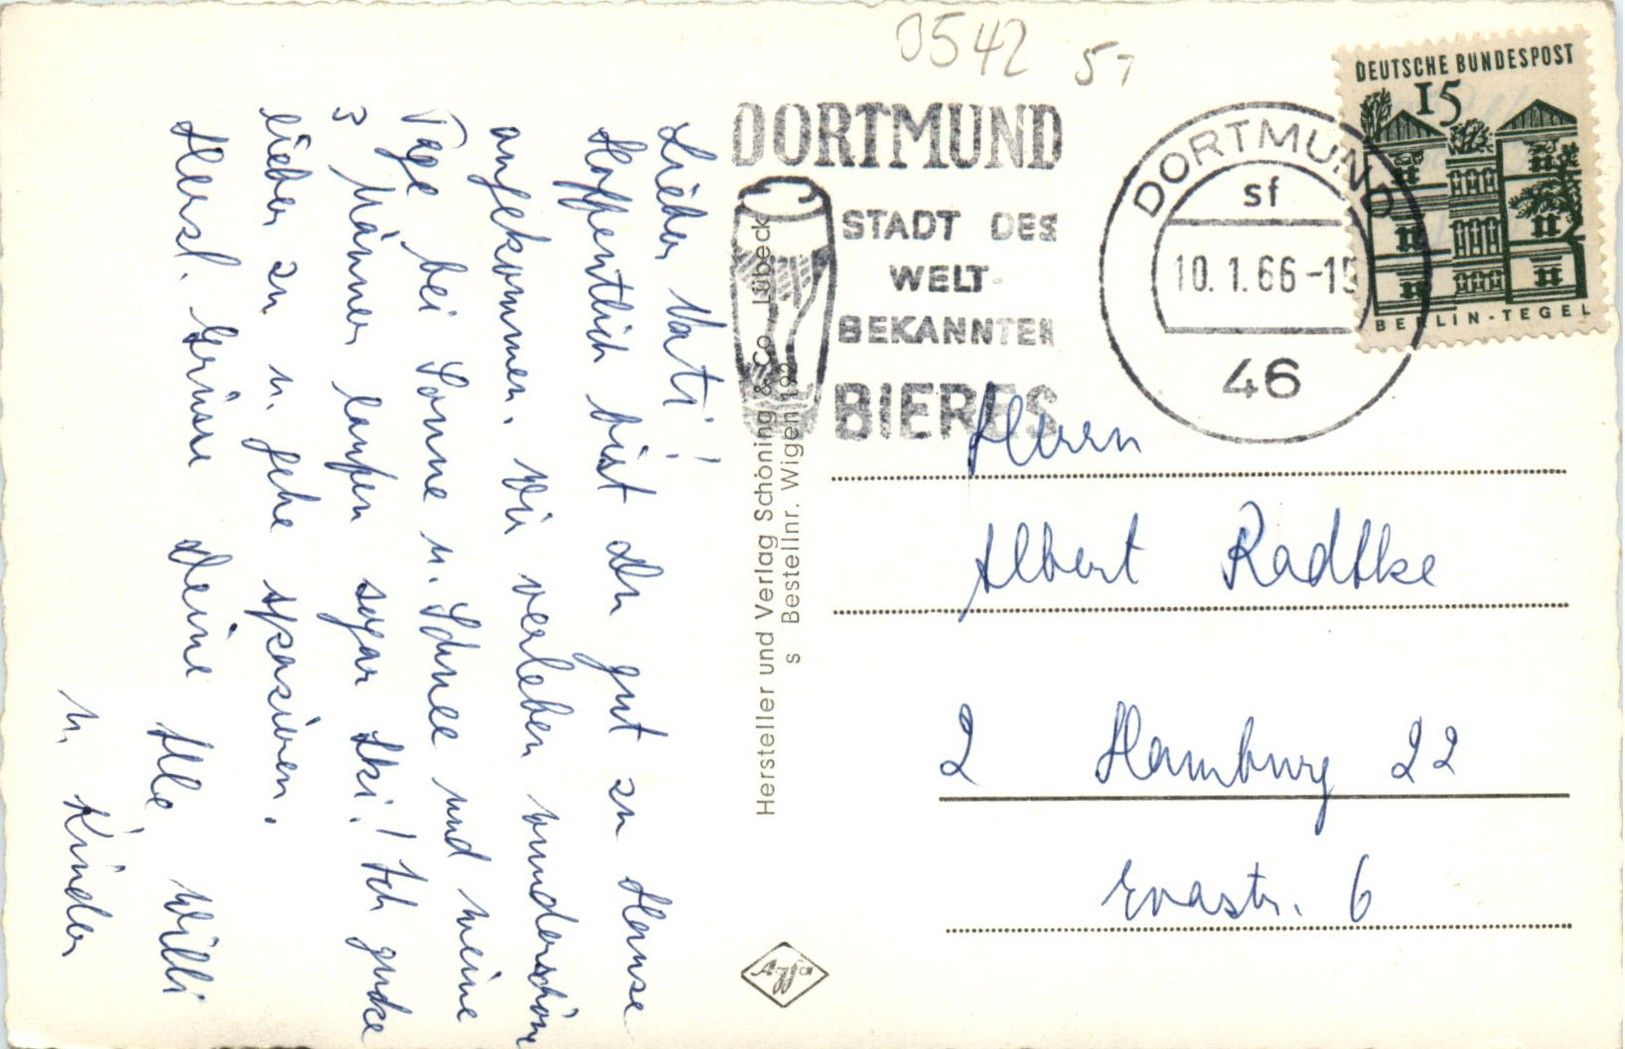 Lieber Vati!
Hoffentlich bist du gut zu Hause
angekommen. Wir verleben wunderschöne
Tage bei Sonne u. Schnee und meine
3 Männer laufen sogar Ski! Ich gucke
lieber zu u. gehe spazieren.
Herzl. Grüsse Deine
Willi
u. Kinder
Hersteller und Verlag Schöning & Co Lübeck
s Bestellnr. Wigen
Agfa
0542 57
DORTMUND
STADT DES
WELT-
BEKANNTEN
BIERES
DORTMUND
sf
10.1.66-15
46
DEUTSCHE BUNDESPOST
15
BERLIN-TEGEL
Herrn
Albert Radtke
2 Hamburg 22
Evastr. 6